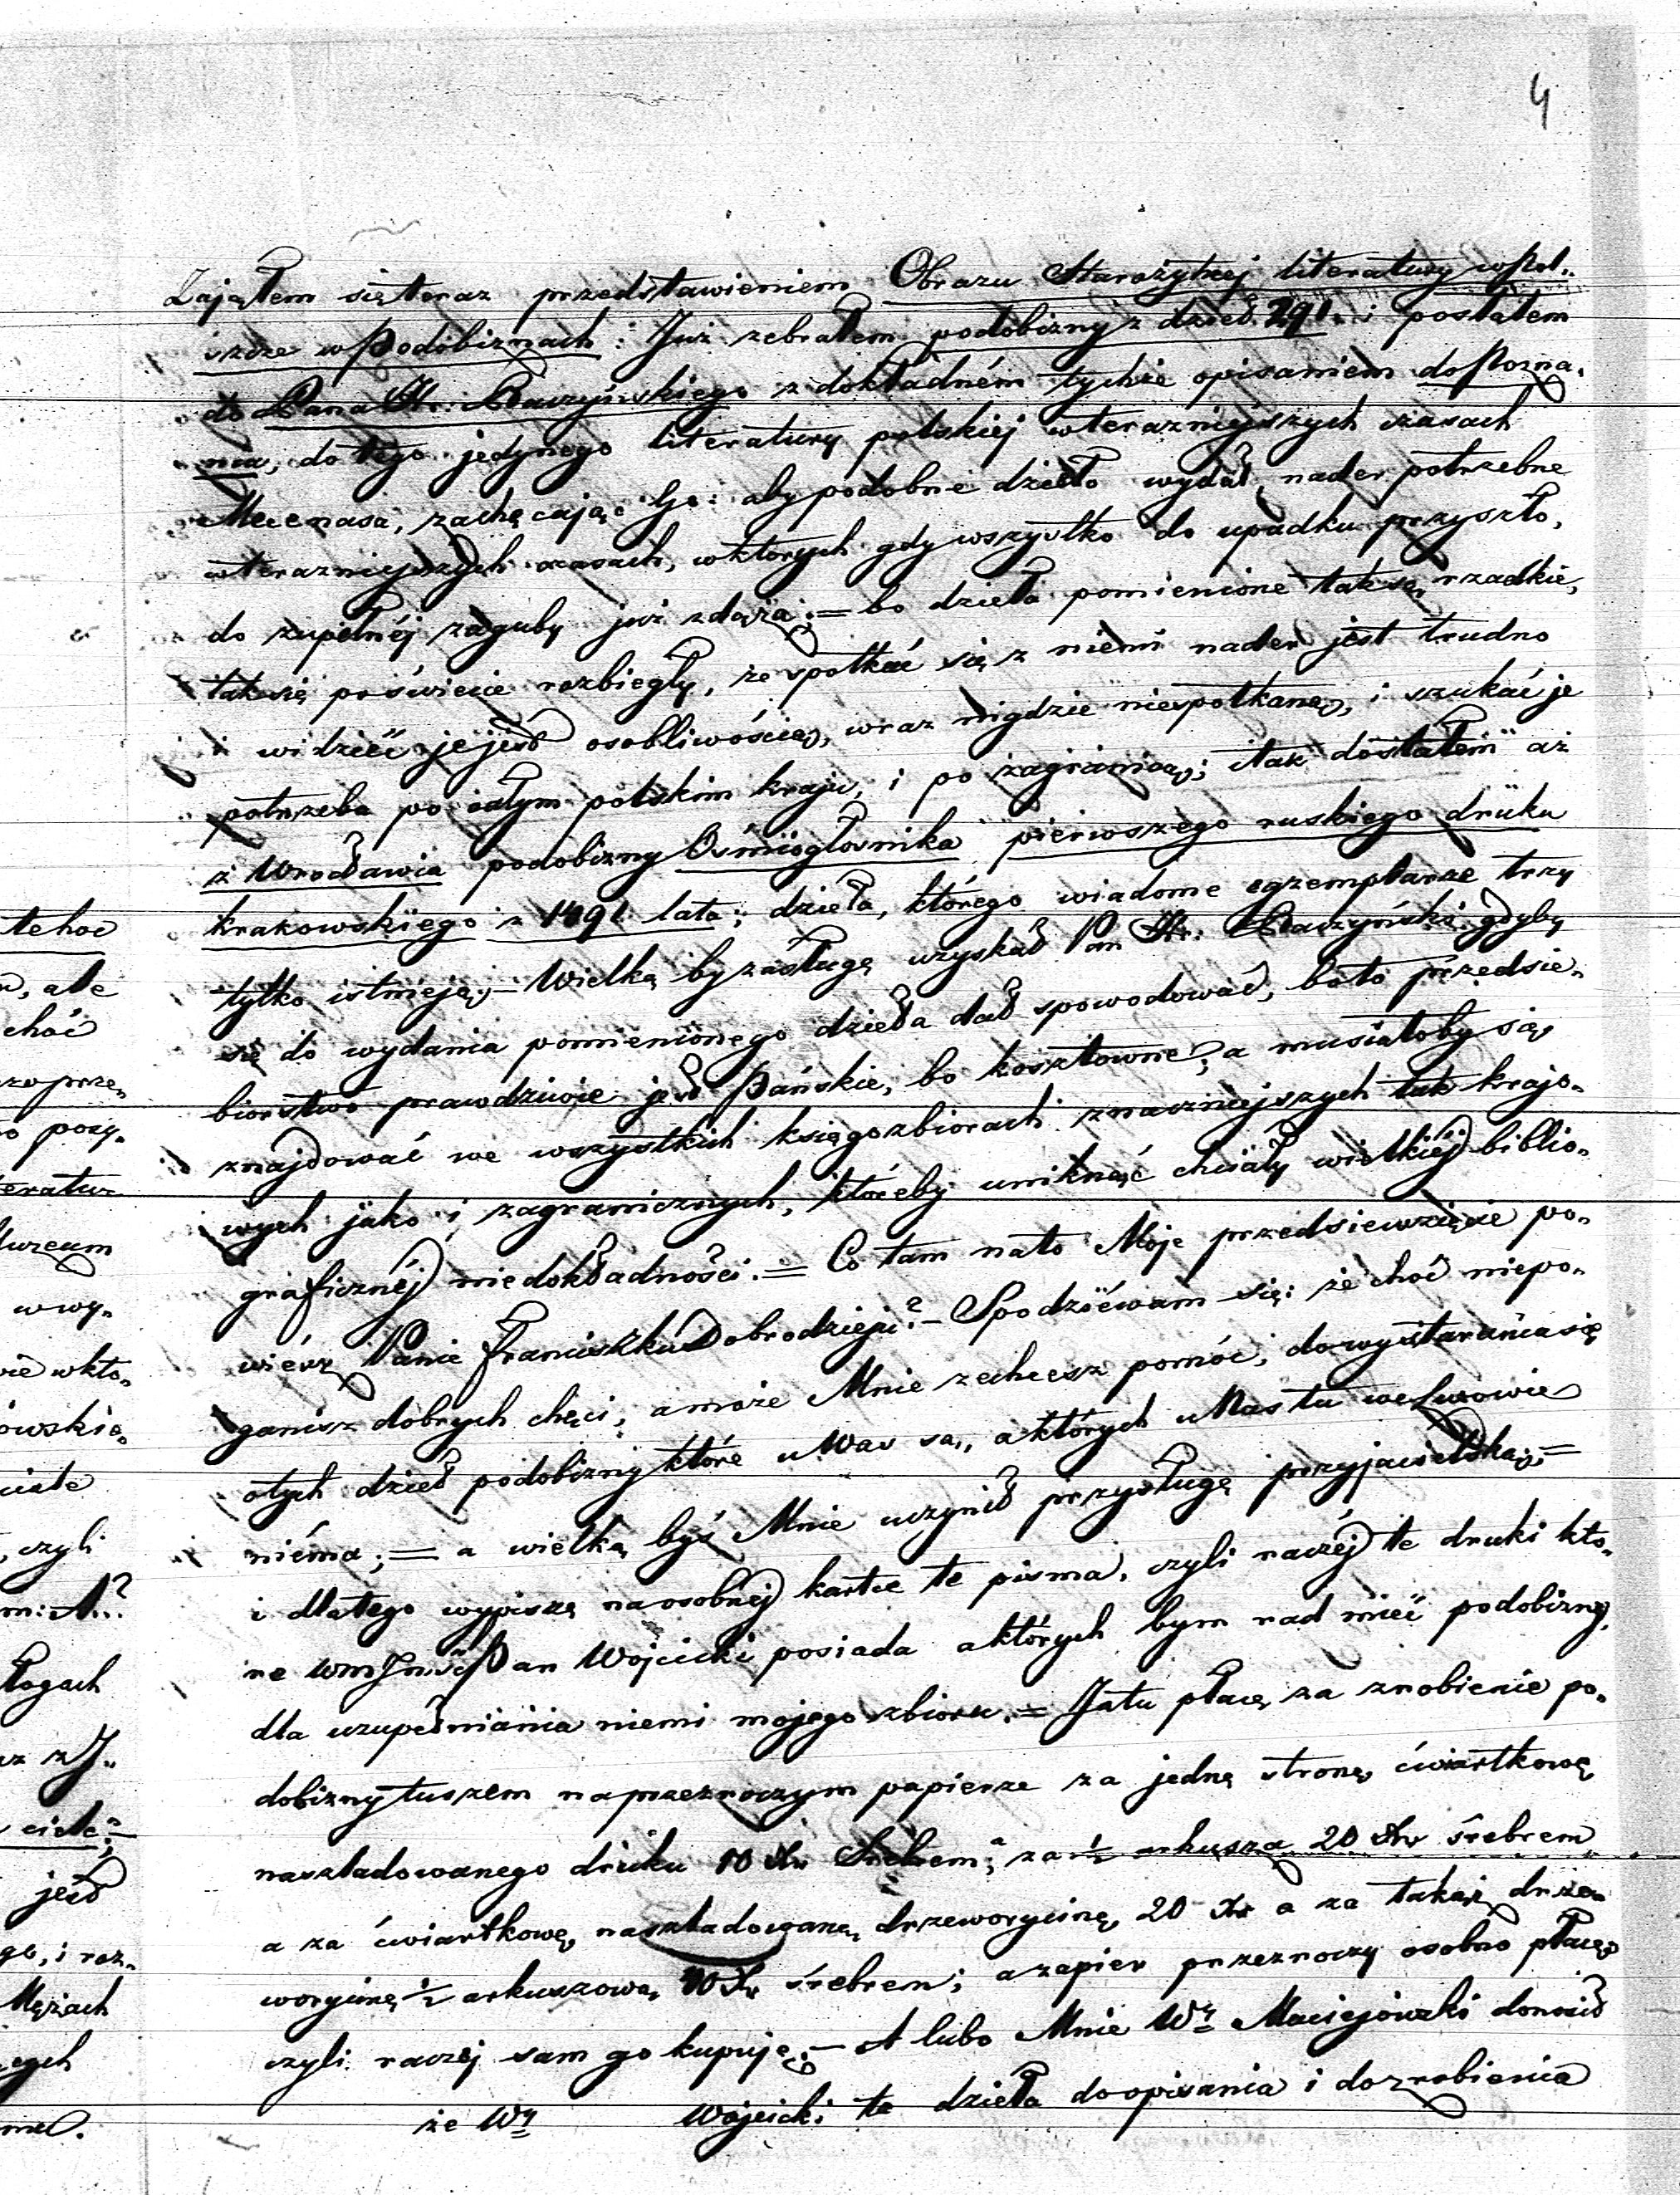 4
Zająłem się teraz przedstawieniem Obrazu Starożytnej literatury wPol„
szcze wPodobiznach: Już zebrałem podobizny z dzieł 291. i posłałem
do Pana Hr: Raczyńskiego z dokładném tychże opisaniem do Pozna„
nia, do tego jedynego literatury polskiej wterazniejszych czasach
Mecenasa, zachęcając Go: aby podobne dzieło wydał, nader potrzebne
wterazniejszych czasach, wktórych gdy wszystko do upadku przyszło,
do zupełnéj zaguby już zdąża; = bo dzieła pomienione tak są rzadkie,
tak się poświecie rozbiegły, że spotkać się z niemi nader jest trudno
i widzieć je jest osobliwością, wraz nigdzie niespotkaną, i szukać je
potrzeba po całym polskim kraju, i po zagranicą; itak dostałem aż
z Wrocławia podobizny Ośmiogłosnika pierwszego ruskiego druku
krakowskiego z 1491 lata; dzieła, którego wiadome egzemplarze trzy
tylko istnieją; – Wielką by zasługę uzyskał Pan Hr: Raczyński gdyby
się do wydania pomienionego dzieła dał spowodować, bo to przedsie„
biorstwo prawdziwie jest Pańskie, bo kosztowne; a musiałoby się
znajdować we wszystkich księgozbiorach znaczniejszych tak krajo„
wych jako i zagranicznych, któreby uniknąć chciały wielkiéj biblio„
graficznéj niedokładności. = Co tam nato Moje przedsiewzięcie po„
wiész Panie Franciszku Dobrodzieju? – Spodziéwam się: że choć niepo„
ganisz dobrych chęci, amoże Mnie zechcesz pomóc, do wystarańia się
otych dzieł podobizny które uWas są, aktórych uNas tu we Lwowie
niéma; = a wielką byś Mnie uczynił przysługę przyjacielską; =
i dlatego wypiszę na osobnéj kartce te pisma, czyli raczéj te druki któ„
re WmJmść Pan Wójcicki posiada aktórych bym rad mieć podobizny,
dla uzupełniania niemi mojego zbioru. = Ja tu płacę za zrobienie po„
dobizny tuszem na przezroczym papierze za jedną stronę ćwiartkową
naszladowanego druku 10 Xr Srebrem; za ½ arkusza 20 Xr śrebrem
a za ćwiartkową naszladowaną drzeworycinę 20 Xr a za takąż drze„
worycinę ½ arkuszową 40 Xr śrebrem; a zapier przezroczy osobno płacę
czyli raczéj sam go kupuję; – A lubo Mnie Wy Maciejówski donosił
że Wy Wójcicki te dzieła do opisania i do zrobienia
tehoć
ale
choć
ratur
wwy„
wktó„
czyli
jest
i roz„